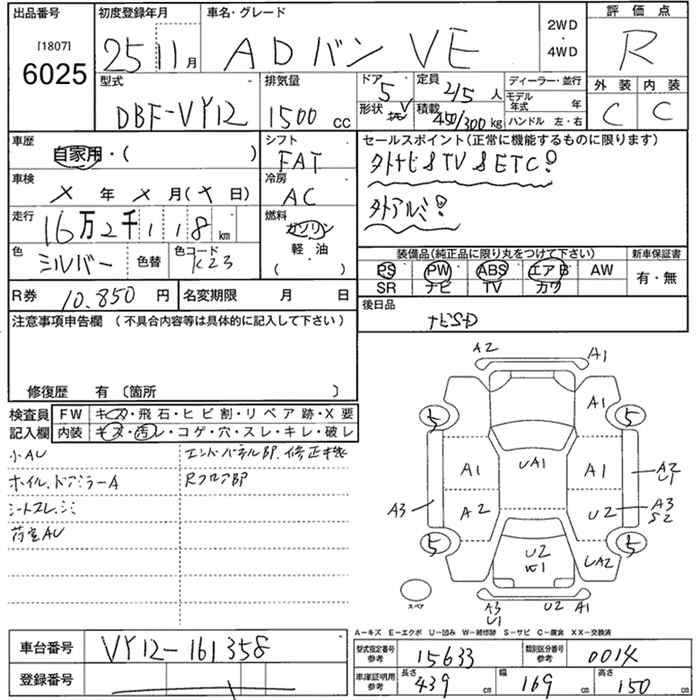 出品番号 初度登録年月 車名・グレード 評価点
[1807] 25 11月 ADバン VE 2WD・4WD R
6025
型式 排気量 ドア 5 定員 2/5 人 ディーラー・並行 外装 内装
DBF-VY12 1500 cc 形状 積載 450/300 kg モデル年式 年 C C
ハンドル 左・右
車歴 自家用・( ) シフト FAT セールスポイント(正常に機能するものに限ります)
車検 × 年 × 月(× 日) 冷房 AC 外ナビ&TV&ETC!
外アルミ!
走行 16万2千118km 燃料 ガソリン・軽油 ( )
色 シルバー 色替 色コード K23 装備品(純正品に限り丸をつけて下さい) 新車保証書
PS PW ABS エアB AW 有・無
SR ナビ TV カワ
R券 10.850 円 名変期限 月 日 後日品
注意事項申告欄 (不具合内容等は具体的に記入して下さい) ナビSD
修復歴 有 〔箇所 〕
検査員 FW キズ・飛石・ヒビ割・リペア跡・X要
記入欄 内装 キズ・汚レ・コゲ・穴・スレ・キレ・破レ
小AU エンドパネルBP.修正機
ホイル.ドアミラーA RフロアBP
シートスレ.シミ
荷室AU
A2 A1
A1
5 5
A1 UA1 A1 A2 U1
A3 A2 U2 A3 S2
5 5
U2 W1 UA2
スペア A3 U1 U2 A1
A-キズ E-エクボ U-凹み W-補修跡 S-サビ C-腐食 XX-交換済
車台番号 VY12-161358 型式指定番号 参考 15633 類別区分番号 参考 0014
登録番号 車庫証明用 参考 長さ 439 cm 幅 169 cm 高さ 150 cm